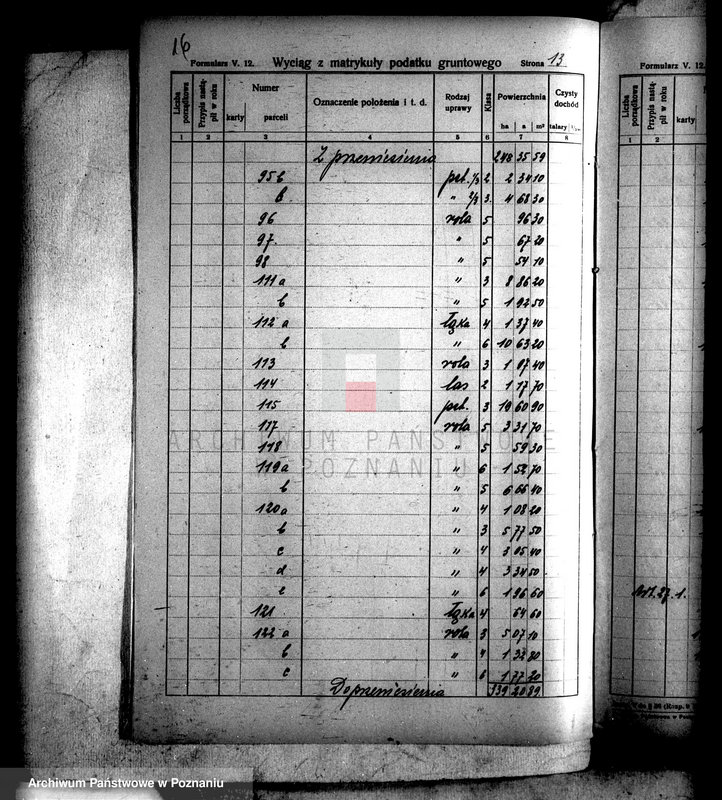 16
Formularz V. 12. Wyciąg z matrykuły podatku gruntowego Strona 13
Liczba porządkowa Przypis nastąpił w roku Numer karty parceli Oznaczenie położenia i t. d. Rodzaj uprawy Klasa Powierzchnia ha a m² Czysty dochód talary
1 2 3 4 5 6 7 8
Z przeniesienia 248 35 59
95 b past. 1/3 2 2 34 10
b " 2/3 3 4 68 30
96 rola 5 96 30
97 " 5 67 20
98 " 5 54 10
111 a " 3 8 86 20
b " 5 1 92 50
112 a łąka 4 1 37 40
b " 6 10 63 20
113 rola 3 1 07 40
114 las 2 1 17 70
115 past. 3 19 60 90
117 rola 5 3 31 70
118 " 5 59 30
119 a " 6 1 52 70
b " 5 6 66 40
120 a " 4 1 08 20
b " 3 5 77 50
c " 4 3 05 40
d " 4 3 34 50
e " 6 1 96 60
121 łąka 4 64 60
122 a rola 3 5 07 10
b " 4 1 32 80
c " 6 1 77 20
Do przeniesienia 339 20 89
Formularz V. 12.
Liczba porządkowa Przypis nastąpił w roku karty
1 2
ARCHIWUM PAŃSTWOWE
W POZNANIU
Archiwum Państwowe w Poznaniu